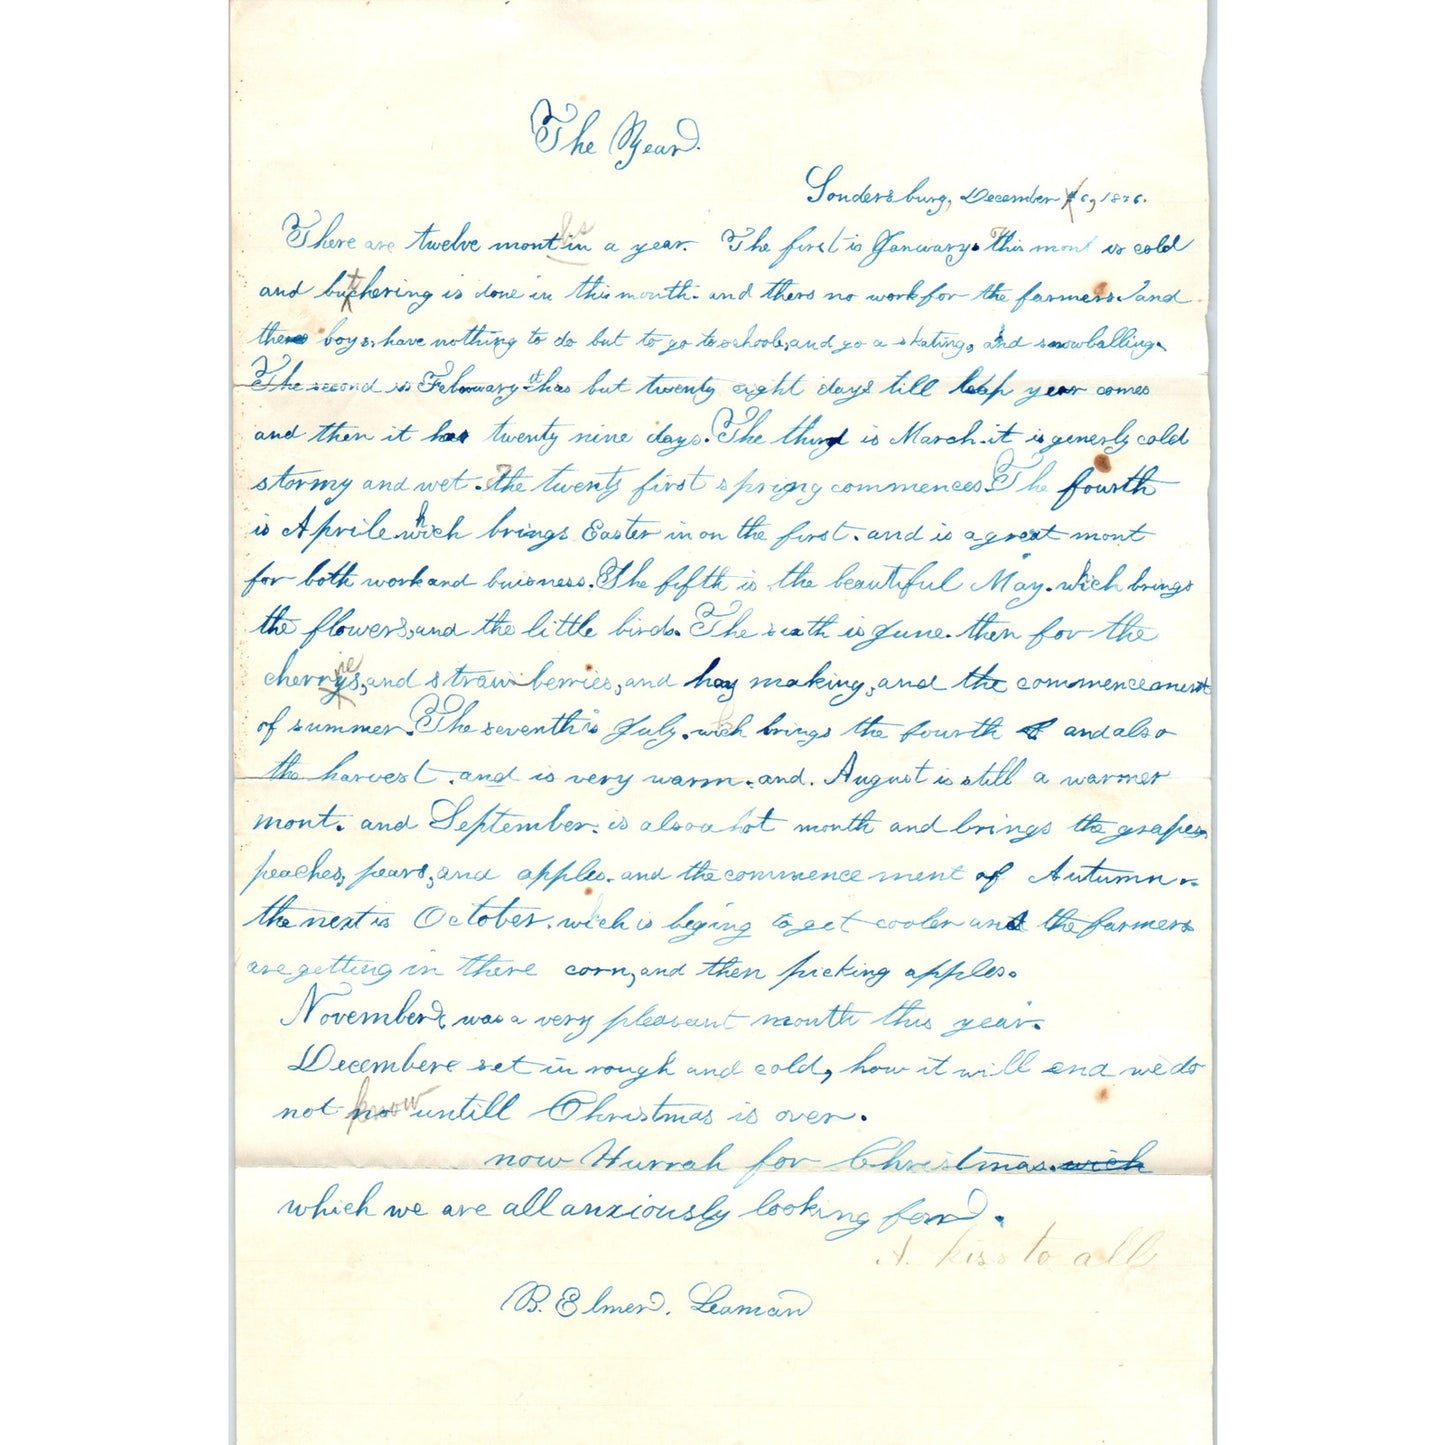 The Year.
Sondersburg, December 6, 1876.
There are twelve months in a year. The first is Januwary. This mont is cold
and butchering is done in this month. and thers no work for the farmers. and
there boys, have nothing to do but to go to schoole, and go a skating, and snowballing.
The second is February it has but twenty eight days till leap year comes
and then it has twenty nine days. The third is March. it is generly cold
stormy and wet. The twenty first spring commences. The fourth
is Aprile. which brings Easter in on the first. and is a great mont
for both work and buisness. The fifth is the beautiful May. which brings
the flowers, and the little birds. The sixth is June. then for the
cherries, and straw berries, and hay making, and the commencement
of summer. The seventh is July. which brings the fourth and also
the harvest. and is very warm. and. August is still a warmer
mont. and September. is also a hot month and brings the grapes,
peaches, pears, and apples. and the commence ment of Autumn.
the next is October. which is beging to get cooler and the farmers
are getting in there corn, and then picking apples.
November was a very pleasant month this year.
Decembere set in rough and cold, how it will end we do
not know untill Christmas is over.
now Hurrah for Christmas. wich
which we are all anxiously looking for.
A kiss to all
B. Elmer. Leaman